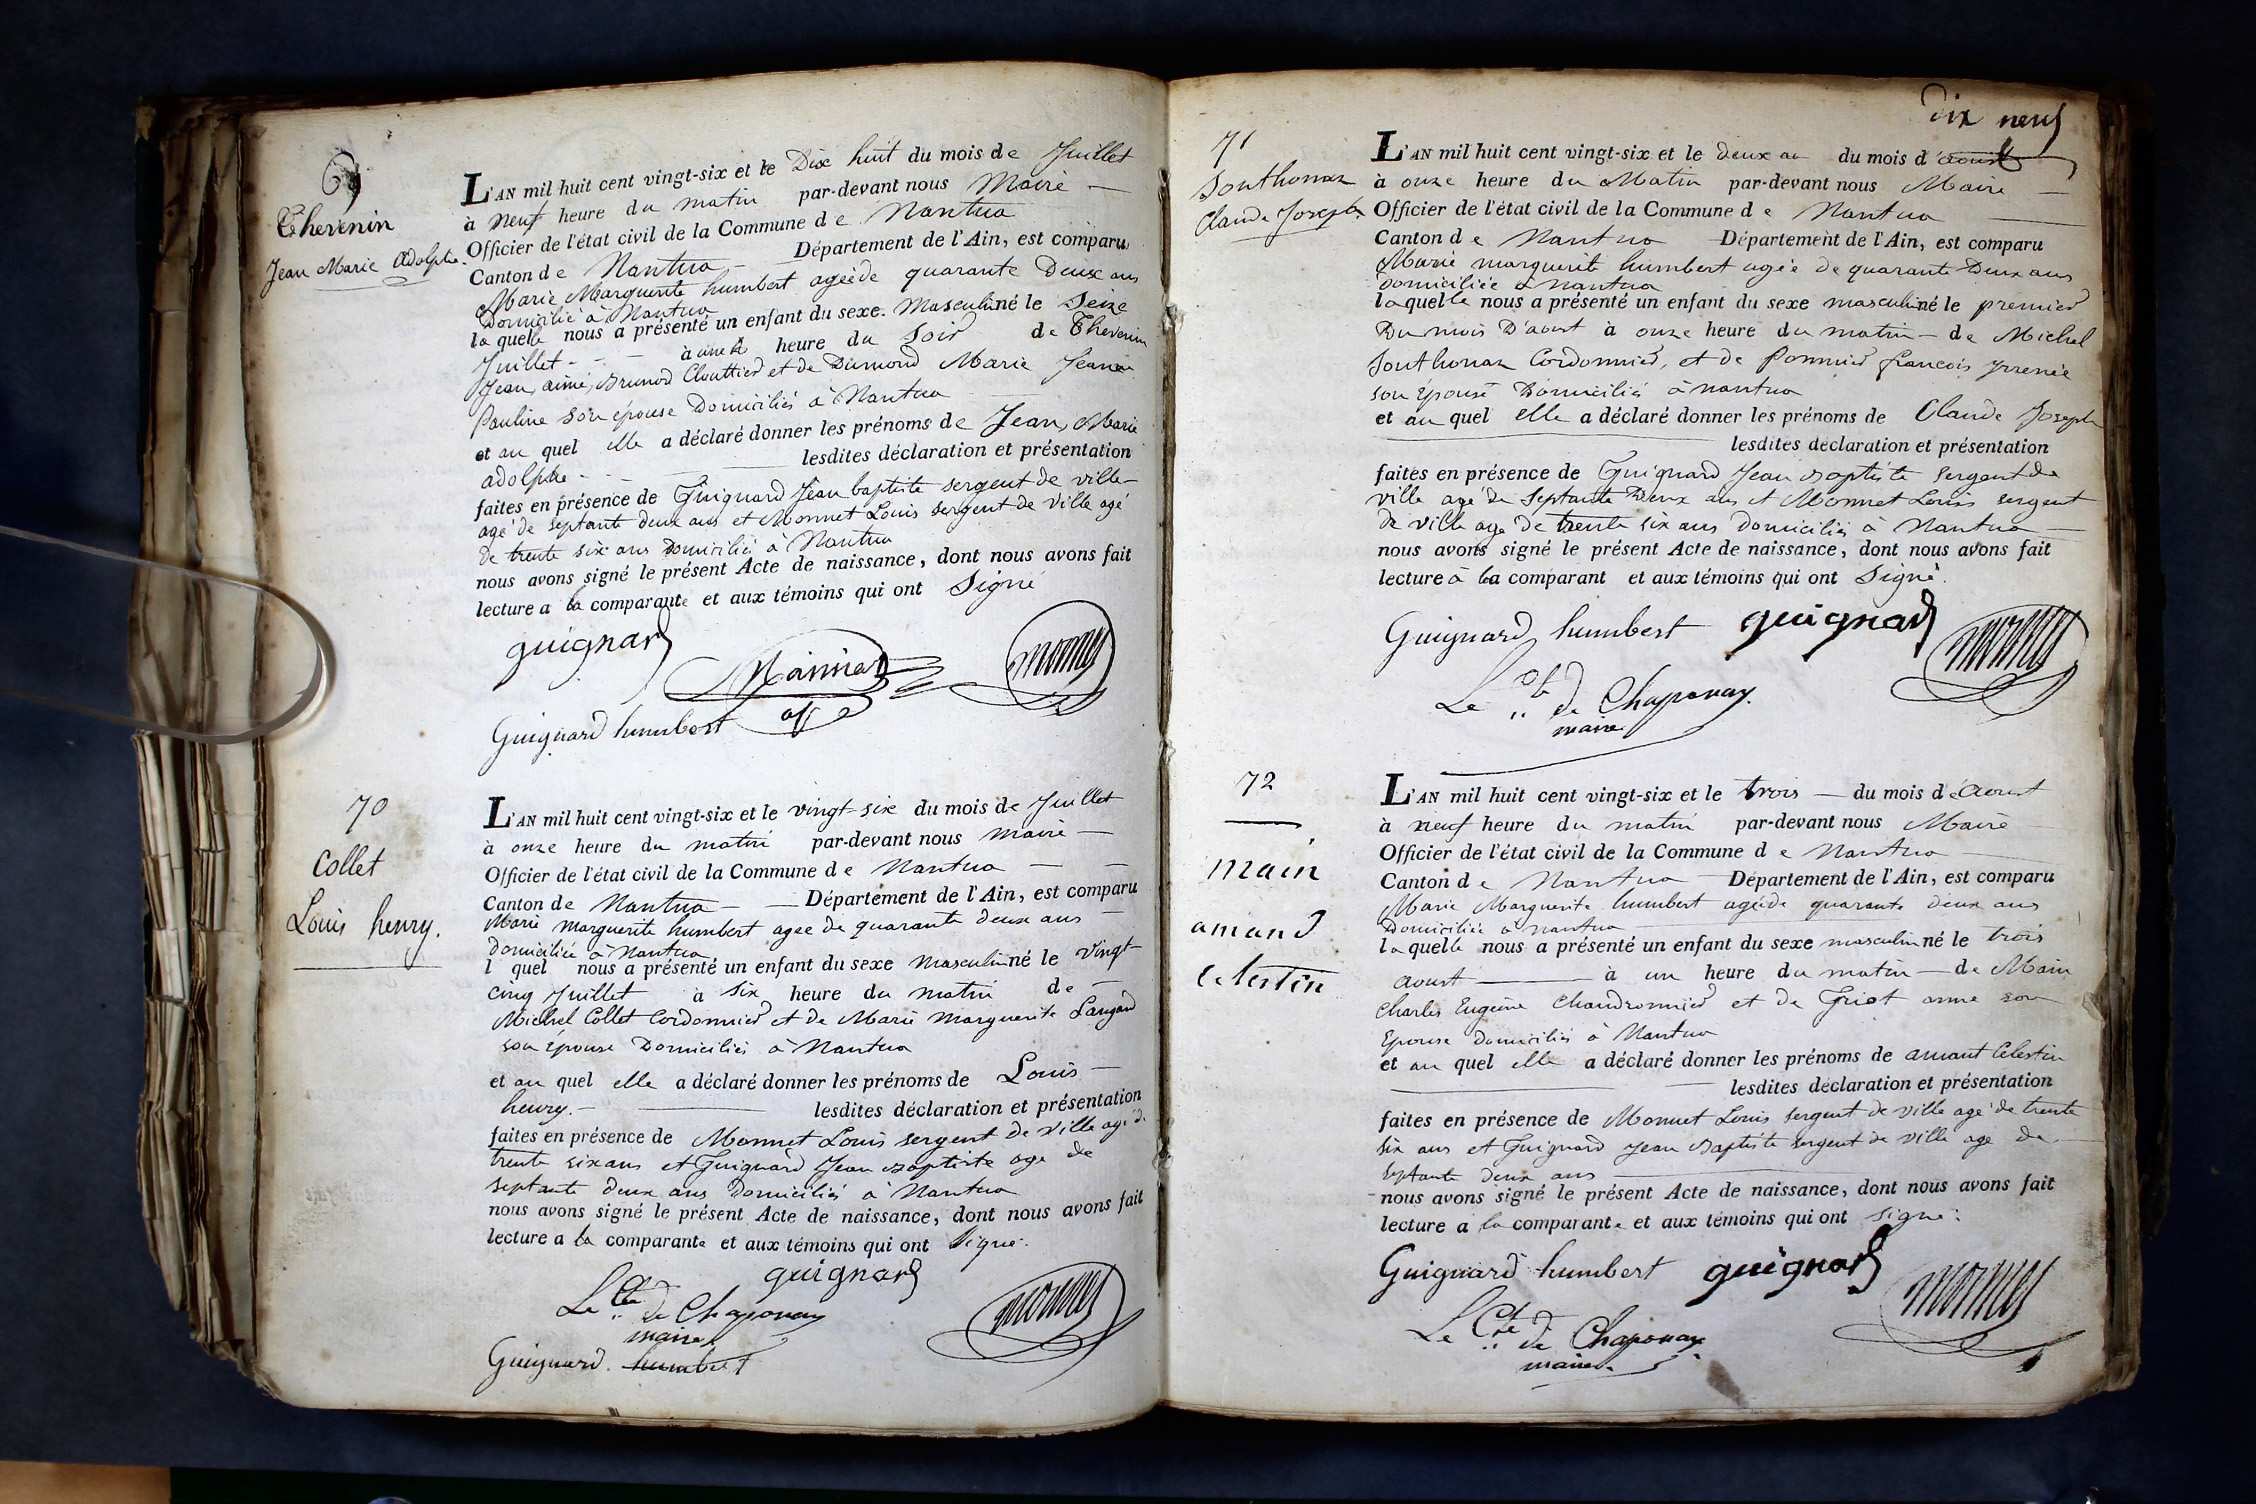 69
Thevenin
Jean Marie Adolphe.
L'AN mil huit cent vingt-six et le Dix huit du mois de Juillet
à neuf heure du matin par-devant nous Maire
Officier de l'état civil de la Commune de Nantua
Canton de Nantua Département de l'Ain, est comparu
Marie Marguerite humbert ageé de quarante Deux ans
Domicilié à Nantua
laquelle nous a présenté un enfant du sexe Masculin né le Seize
Juillet à heure du Soir de Thevenin
Jean, aimé, Brunod Clouttier et de Dumond Marie Jeanne
Pauline son épouse Domiciliés à Nantua
et au quel elle a déclaré donner les prénoms de Jean, Marie
adolphe lesdites déclaration et présentation
faites en présence de Guignard Jean baptiste sergent de ville
agé de septante deux ans et Monnet Louis sergent de ville agé
de trente six ans Domicilié à Nantua
nous avons signé le présent Acte de naissance, dont nous avons fait
lecture a la comparante et aux témoins qui ont Signé
guignard
monnet
Guignard humbert
70
Collet
Louis henry.
L'AN mil huit cent vingt-six et le vingt six du mois de Juillet
à onze heure du matin par-devant nous maire
Officier de l'état civil de la Commune de Nantua
Canton de Nantua Département de l'Ain, est comparu
Marie marguerite humbert agee de quarante deux ans
domiciliée à Nantua
l quel nous a présenté un enfant du sexe masculin né le vingt
cinq Juillet à six heure du matin de
Michel Collet Cordonnier et de Marie Marguerite
son épouse Domiciliés à Nantua
et au quel elle a déclaré donner les prénoms de Louis
henry. lesdites déclaration et présentation
faites en présence de Monnet Louis sergent de ville agé de
trente six ans et Guignard Jean Baptiste age de
septante deux ans domiciliés à Nantua
nous avons signé le présent Acte de naissance, dont nous avons fait
lecture a la comparante et aux témoins qui ont signé.
guignard
Le Cte de Chaponay
maire
monnet
Guignard humbert
Dix neuf
71
Southonax
Claude Joseph
L'AN mil huit cent vingt-six et le deux au du mois d'aoust
à onze heure du Matin par-devant nous Maire
Officier de l'état civil de la Commune de Nantua
Canton de Nantua Département de l'Ain, est comparu
Marie marguerite humbert agée de quarante Deux ans
domiciliée à Nantua
laquelle nous a présenté un enfant du sexe masculin né le premier
Du mois D'aoust à onze heure du matin de Michel
Southonax Cordonnier, et de Pommier francois yrrenée
son épouse Domiciliés à nantua
et au quel elle a déclaré donner les prénoms de Claude Joseph
lesdites déclaration et présentation
faites en présence de Guignard Jean Baptiste sergent de
ville agé de septante Deux ans et Monnet Louis sergent
de ville age de trente six ans domiciliés à Nantua
nous avons signé le présent Acte de naissance, dont nous avons fait
lecture à la comparant et aux témoins qui ont Signé.
Guignard humbert guignard
monnet
Le Cte de Chaponay.
maire
72
main
amand
Celestin
L'AN mil huit cent vingt-six et le trois du mois d'Aoust
à neuf heure du matin par-devant nous Maire
Officier de l'état civil de la Commune de Nantua
Canton de Nantua Département de l'Ain, est comparu
Marie Marguerite humbert ageéde quarante deux ans
Domiciliée à nantua
laquelle nous a présenté un enfant du sexe masculin né le trois
aoust à un heure du matin de Main
Charles Eugeine Chaudronnier et de Griot anne son
Epouse domiciliés à Nantua
et au quel elle a déclaré donner les prénoms de amant Celestin
lesdites déclaration et présentation
faites en présence de Monnet Louis sergent de ville agé de trente
six ans et Guignard Jean Baptiste sergent de ville age de
septante deux ans
nous avons signé le présent Acte de naissance, dont nous avons fait
lecture a la comparante et aux témoins qui ont signé.
Guignard humbert guignard
monnet
Le Cte de Chaponay
maire